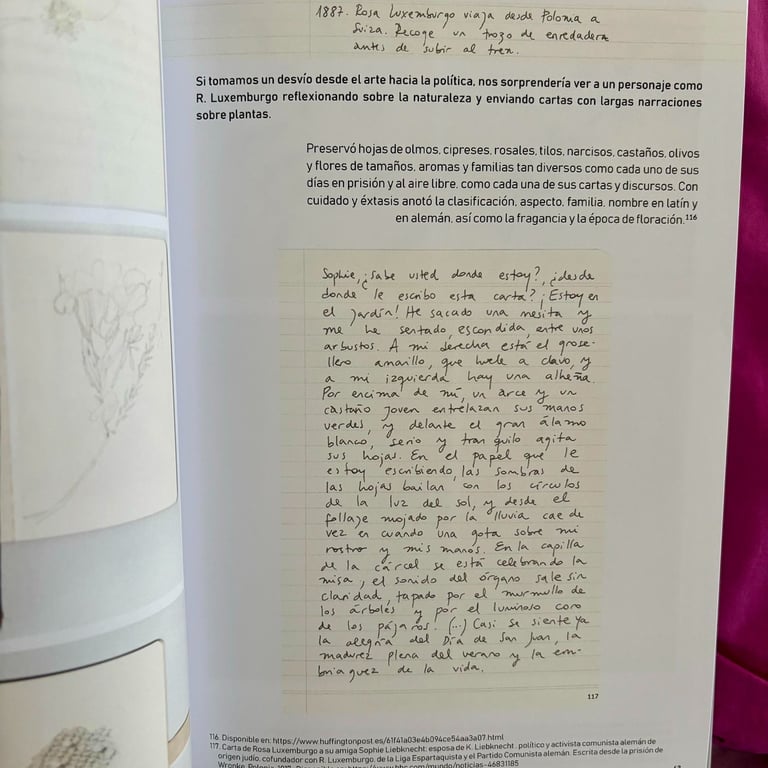 1887. Rosa Luxemburgo viaja desde Polonia a
Suiza. Recoge un trozo de enredadera
antes de subir al tren.
Si tomamos un desvío desde el arte hacia la política, nos sorprendería ver a un personaje como
R. Luxemburgo reflexionando sobre la naturaleza y enviando cartas con largas narraciones
sobre plantas.
Preservó hojas de olmos, cipreses, rosales, tilos, narcisos, castaños, olivos
y flores de tamaños, aromas y familias tan diversos como cada uno de sus
días en prisión y al aire libre, como cada una de sus cartas y discursos. Con
cuidado y éxtasis anotó la clasificación, aspecto, familia, nombre en latín y
en alemán, así como la fragancia y la época de floración.116
Sophie, ¿sabe usted donde estoy?, ¿desde
donde le escribo esta carta? ¡Estoy en
el jardín! He sacado una mesita y
me he sentado, escondida, entre unos
arbustos. A mi derecha está el grose-
llero amarillo, que huele a clavo, y
a mi izquierda hay una alheña.
Por encima de mí, un arce y un
castaño joven entrelazan sus manos
verdes, y delante el gran álamo
blanco, serio y tranquilo agita
sus hojas. En el papel que le
estoy escribiendo, las sombras de
las hojas bailan con los círculos
de la luz del sol, y desde el
follaje mojado por la lluvia cae de
vez en cuando una gota sobre mi
rostro y mis manos. En la capilla
de la cárcel se está celebrando la
misa, el sonido del órgano sale sin
claridad, tapado por el murmullo de
los árboles y por el luminoso coro
de los pájaros. (...) Casi se siente ya
la alegría del Día de San Juan, la
madurez plena del verano y la em-
briaguez de la vida.
117
116. Disponible en: https://www.huffingtonpost.es/61f41a03e4b094ce54aa3a07.html
117. Carta de Rosa Luxemburgo a su amiga Sophie Liebknecht: esposa de K. Liebknecht, político y activista comunista alemán de
origen judío, cofundador con R. Luxemburgo, de la Liga Espartaquista y el Partido Comunista alemán. Escrita desde la prisión de